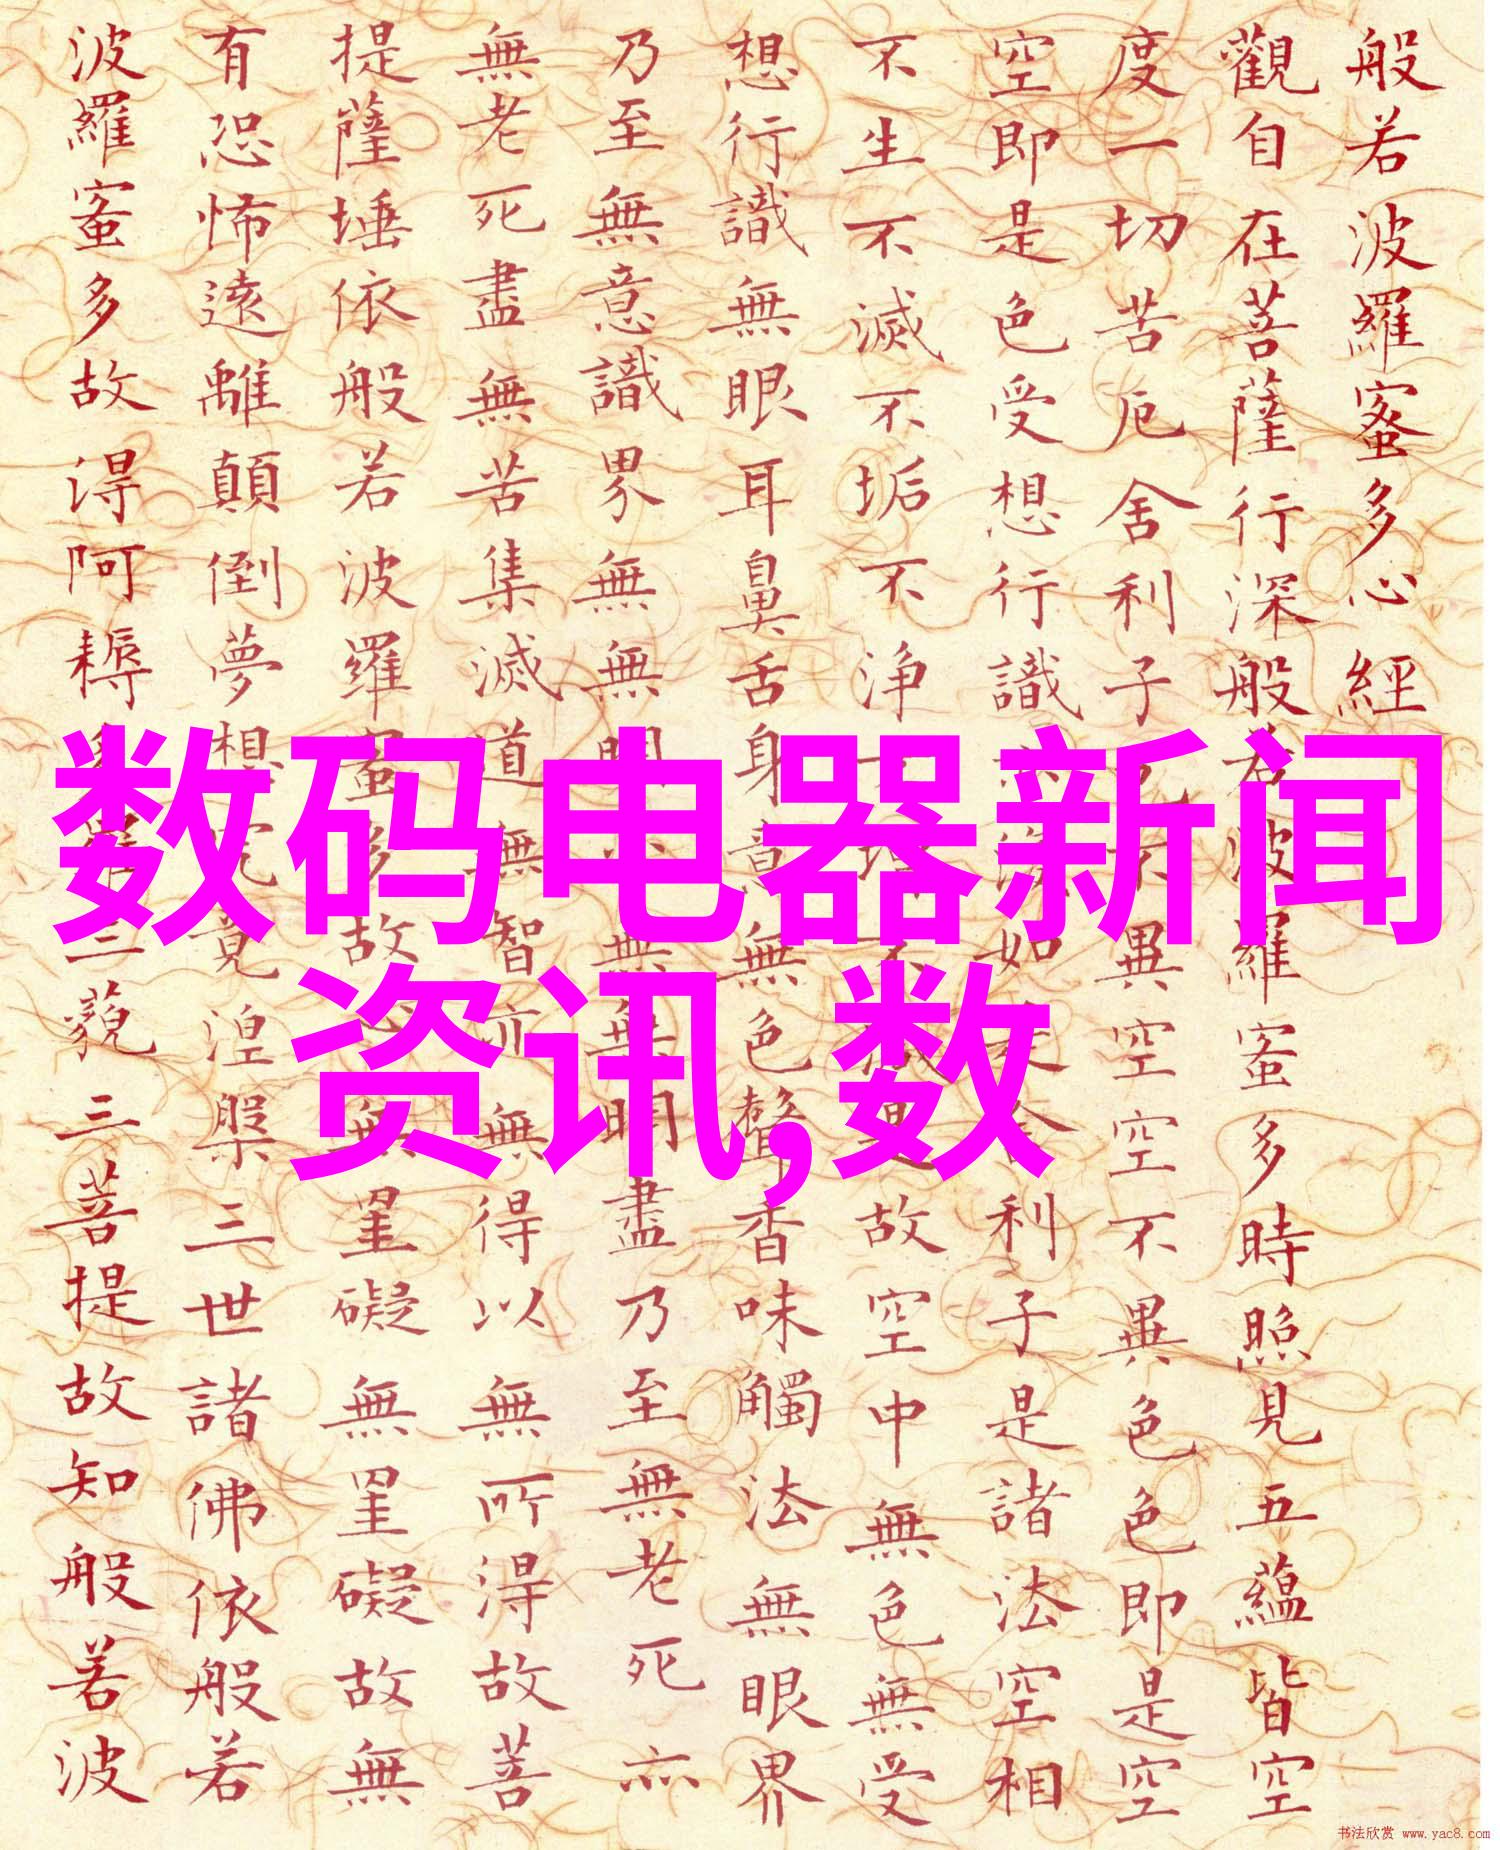 般若波羅蜜多心經
觀自在菩薩行深般若波羅蜜多時照見五蘊皆空
度一切苦厄舍利子色不異空空不異色色即是空
空即是色受想行識亦復如是舍利子是諸法空相
不生不滅不垢不浄不增不減是故空中無色無受
想行識無眼耳鼻舌身意無色聲香味觸法無眼界
乃至無意識界無無明亦無無明盡乃至無老死亦
無老死盡無苦集滅道無智亦無得以無所得故菩
提薩埵依般若波羅蜜多故心無罣礙無罣礙故無
有恐怖遠離顛倒夢想究竟涅槃三世諸佛依般若
波羅蜜多故得阿耨多羅三藐三菩提故知般若波
数码电器新闻
资讯,数
书法欣赏 www.yac8.com